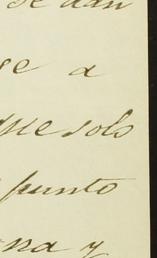 se dan
se a
que solo
punto
na y